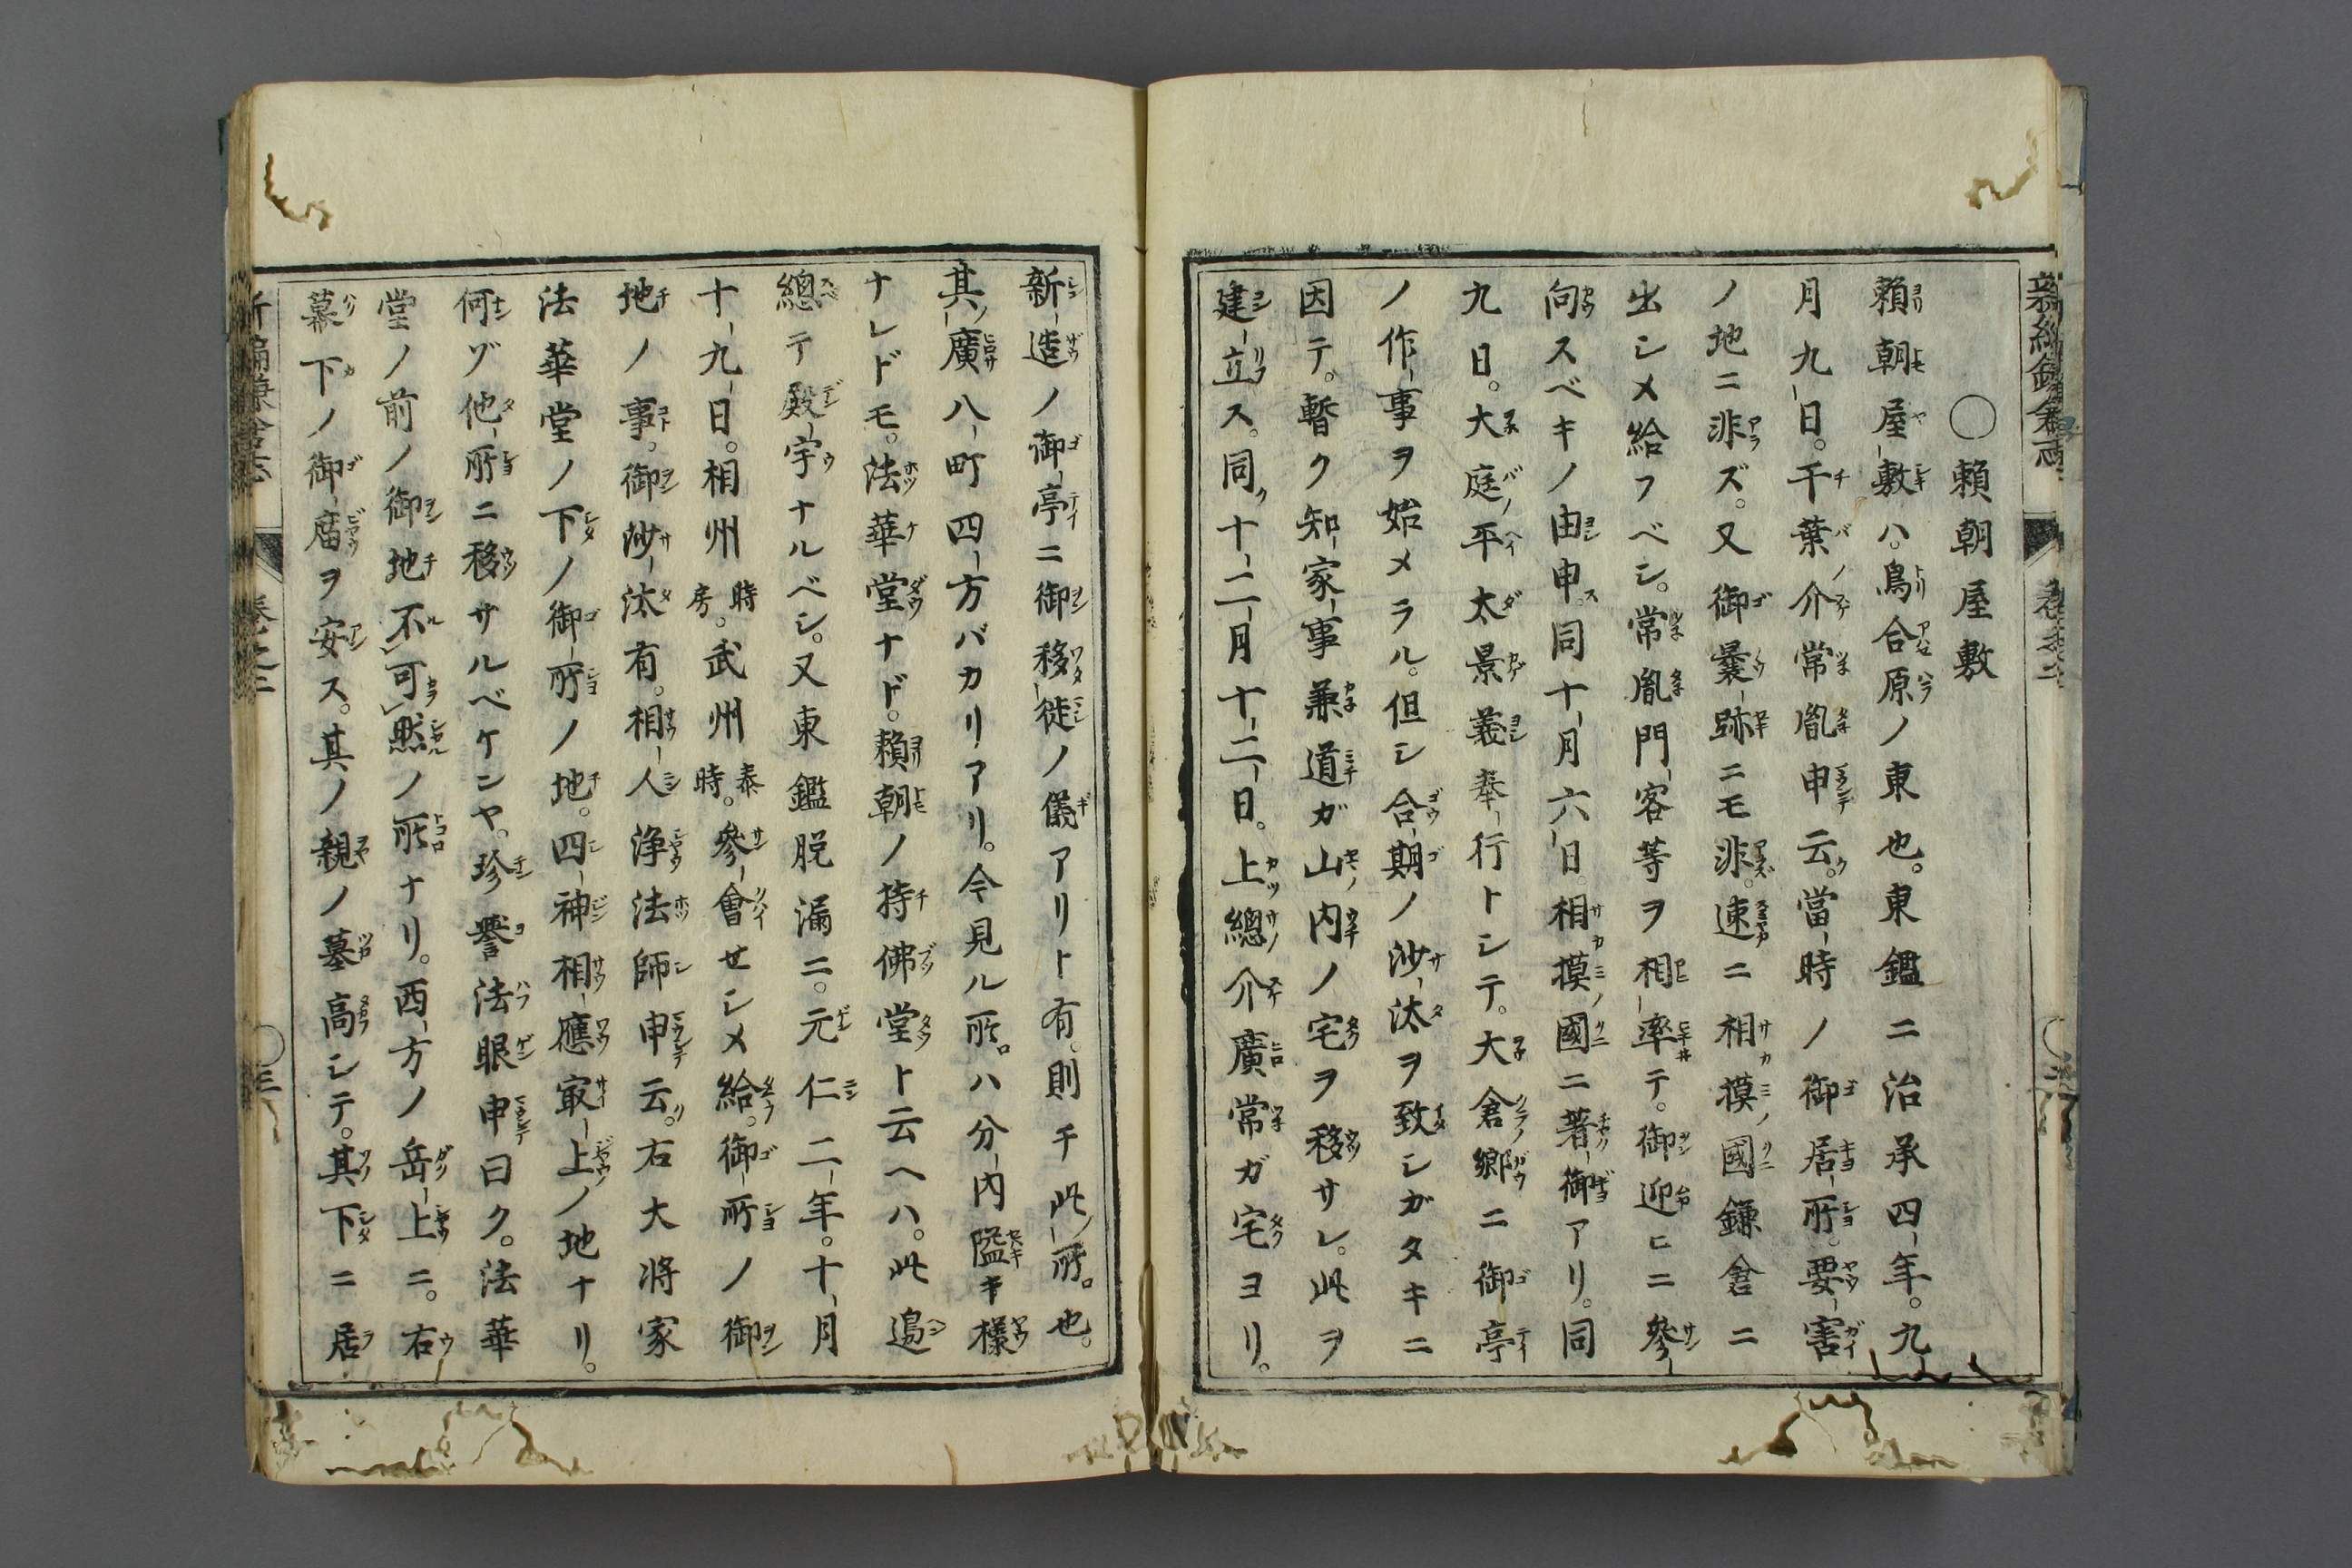 〇頼朝屋敷
頼朝屋敷ハ。鳥合原ノ東也。東鑑ニ治承四年。九
月九日。千葉介常胤申云。當時ノ御居所。要害
ノ地ニ非ズ。又御曩跡ニモ非。速ニ相摸國鎌倉ニ
出シメ給フベシ。常胤門客等ヲ相率テ。御迎ヒニ參
向スベキノ由申。同十月六日。相摸國ニ著御アリ。同
九日。大庭平太景義奉行トシテ。大倉郷ニ御亭
ノ作事ヲ始メラル。但シ合期ノ沙汰ヲ致シガタキニ
因テ。暫ク知家事兼道ガ山内ノ宅ヲ移サレ。此ヲ
建立ス。同ク十二月十二日。上總介廣常ガ宅ヨリ。
新造ノ御亭ニ御移徙ノ儀アリト有。則チ此所。也。
其ノ廣八町四方バカリアリ。今見ル所。ハ分内隘キ樣
ナレドモ。法華堂ナド。頼朝ノ持佛堂ト云ヘハ。此邉
總テ殿宇ナルベシ。又東鑑脱漏ニ。元仁二年。十月
十九日。相州時房。武州泰時。參會せシメ給。御所ノ御
地ノ事。御沙汰有。相人浄法師申云。右大将家
法華堂ノ下ノ御所ノ地。四神相應㝡上ノ地ナリ。
何ゾ他所ニ移サルベケンヤ。珍譽法眼申曰ク。法華
堂ノ前ノ御地不可然ノ所ナリ。西方ノ岳上ニ。右
幕下ノ御廟ヲ安ス。其ノ親ノ墓高シテ。其下ニ居